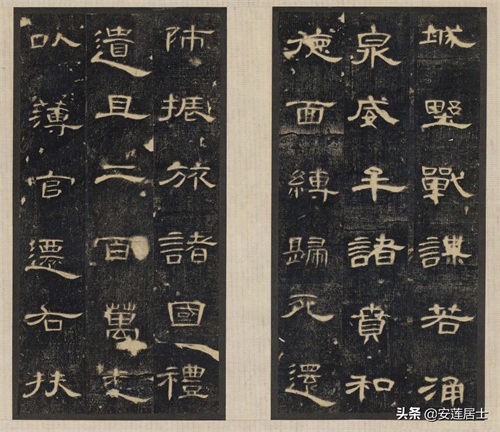 城墅戰謀若涌
泉威牟諸賁和
德面縛歸死還
師振旅諸國禮
遺且二百萬悉
以薄官遷右扶
头条 @安莲居士